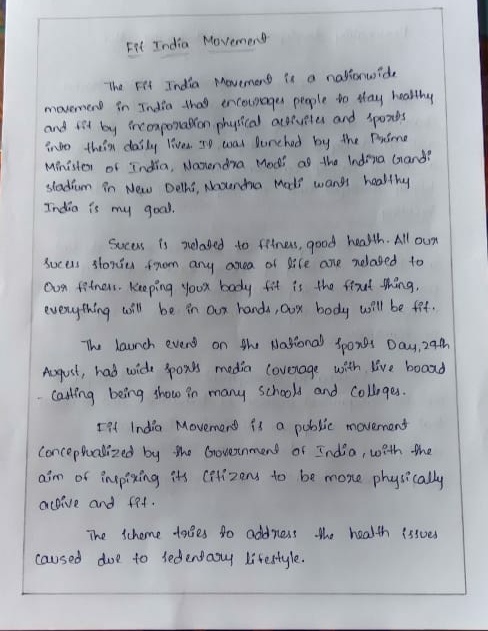 Fit India Movement
The Fit India Movement is a nationwide
movement in India that encourages people to stay healthy
and fit by incorporation physical activites and sports
into their daily lives It was lunched by the Prime
Minister of India, Narendra Modi at the Indira Gandi
stadium in New Delhi, Narendra Modi wants healthy
India is my goal.
Sucess is related to fitness, good health. All our
Sucess stories from any area of life are related to
Our fitness. Keeping your body fit is the first thing,
everything will be in our hands, Our body will be fit.
The launch event on the National Sports Day, 29th
August, had wide sports media Coverage with live board
- Casting being show in many Schools and Colleges.
Fit India Movement is a public movement
Conceptualized by the Government of India, with the
aim of inspiring its Citizens to be more physically
active and fit.
The Scheme tries to address the health issues
Caused due to Sedentary Lifestyle.